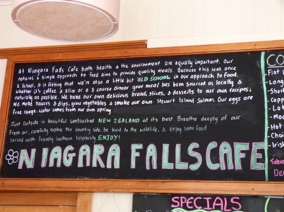 At Niagara Falls Cafe both health & the environment are equally important. Our
nature's simple approach to food aims to provide quality meals. Because this was once
a School, it is fitting that we're also a little bit OLD SCHOOL in our approach to food.
Whether it's coffee & a slice or a 3 course dinner your meal has been sourced as locally &
naturally as possible. We bake our own delicious bread, slices, & desserts to our own recipes,
We make sauces & dips, grow vegetables & smoke our own Stewart Island Salmon. Our eggs are
free range. water comes from our own spring.
Just Outside is beautiful untouched NEW ZEALAND at its best. Breathe deeply of our
Fresh air, carefully explore the country. We be kind to the wildlife, & enjoy some food
served with friendly southern hospitality ENJOY!
NIAGARA FALLS CAFE
CO
Flat
Long
Short
Capp
Latt
Moc
Hot
Chai
Irish
SPECIALS